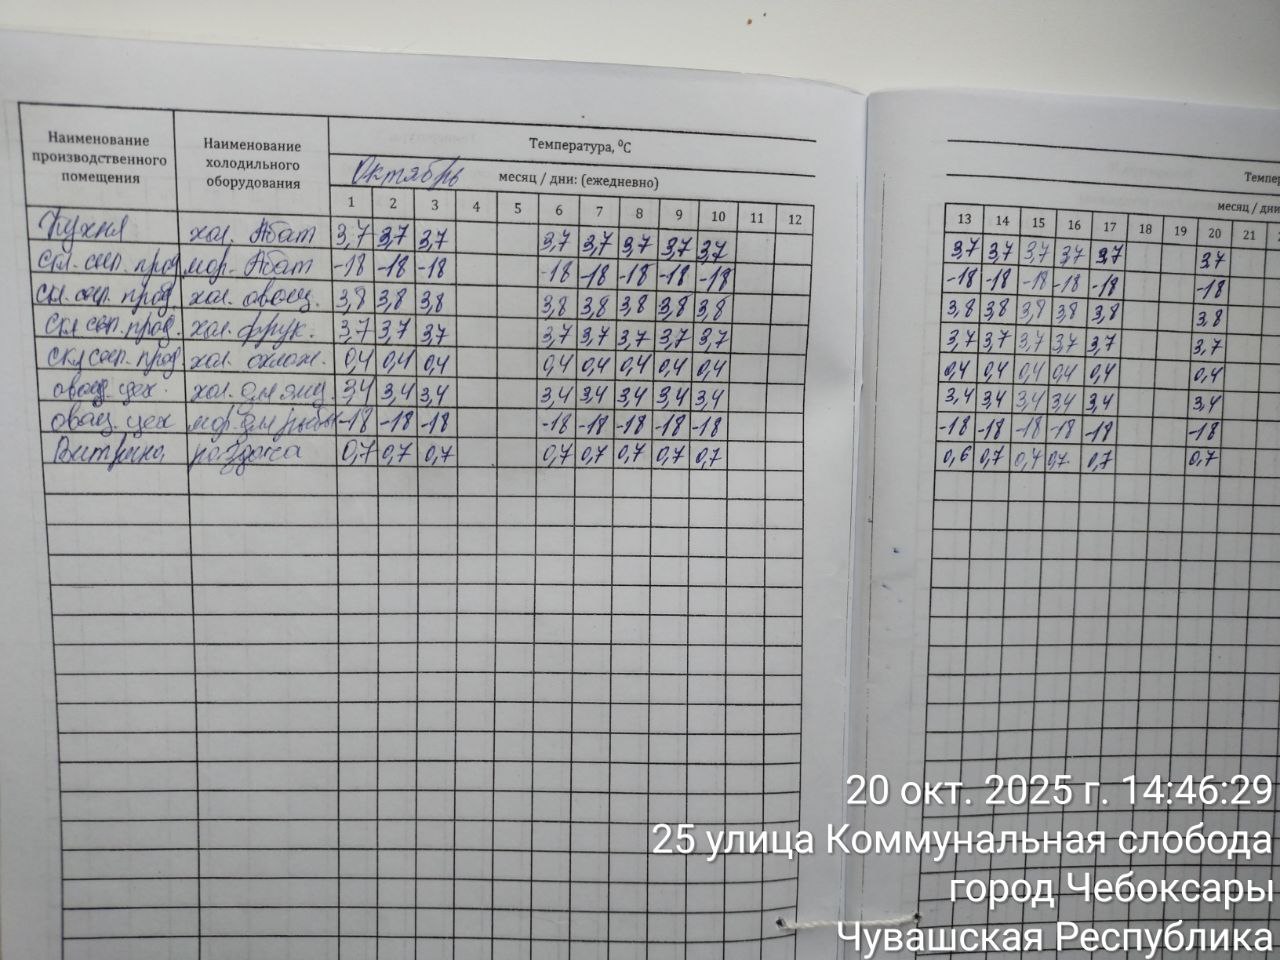 Наименование производственного помещения
Наименование холодильного оборудования
Температура, ⁰С
Октябрь месяц / дни: (ежедневно)
1 2 3 4 5 6 7 8 9 10 11 12
Кухня хол. Абат 3,7 3,7 3,7 3,7 3,7 3,7 3,7 3,7
скл. сып. прод мор. Абат -18 -18 -18 -18 -18 -18 -18 -18
скл. сып. прод. хол. овощ. 3,8 3,8 3,8 3,8 3,8 3,8 3,8 3,8
скл сып. прод. хол. фрук. 3,7 3,7 3,7 3,7 3,7 3,7 3,7 3,7
скл сып. прод хол. 0,4 0,4 0,4 0,4 0,4 0,4 0,4 0,4
овощ. цех. хол. для яиц. 3,4 3,4 3,4 3,4 3,4 3,4 3,4 3,4
овощ. цех мор. для рыбы -18 -18 -18 -18 -18 -18 -18 -18
Витрина раздача 0,7 0,7 0,7 0,7 0,7 0,7 0,7 0,7
Темпер
месяц / дни
13 14 15 16 17 18 19 20 21
3,7 3,7 3,7 3,7 3,7 3,7
-18 -18 -18 -18 -18 -18
3,8 3,8 3,8 3,8 3,8 3,8
3,7 3,7 3,7 3,7 3,7 3,7
0,4 0,4 0,4 0,4 0,4 0,4
3,4 3,4 3,4 3,4 3,4 3,4
-18 -18 -18 -18 -18 -18
0,6 0,7 0,4 0,7 0,7 0,7
20 окт. 2025 г. 14:46:29
25 улица Коммунальная слобода
город Чебоксары
Чувашская Республика